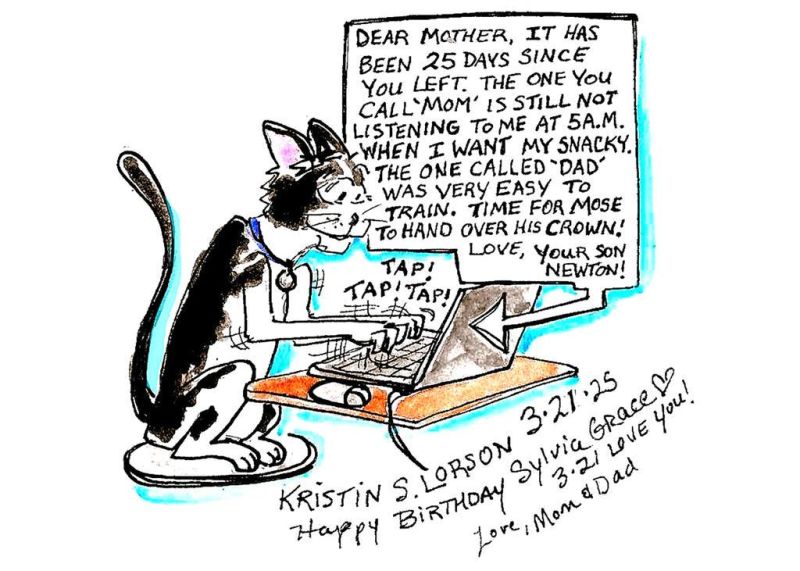 DEAR MOTHER, IT HAS
BEEN 25 DAYS SINCE
YOU LEFT. THE ONE YOU
CALL 'MOM' IS STILL NOT
LISTENING TO ME AT 5A.M.
WHEN I WANT MY SNACKY.
THE ONE CALLED 'DAD'
WAS VERY EASY TO
TRAIN. TIME FOR MOSE
TO HAND OVER HIS CROWN!
LOVE, YOUR SON
NEWTON!
TAP!
TAP! TAP!
KRISTIN S. LORSON 3.21.25
Happy BIRTHDAY Sylvia Grace ♡
3.21 LOVE YOU!
Love, Mom & Dad